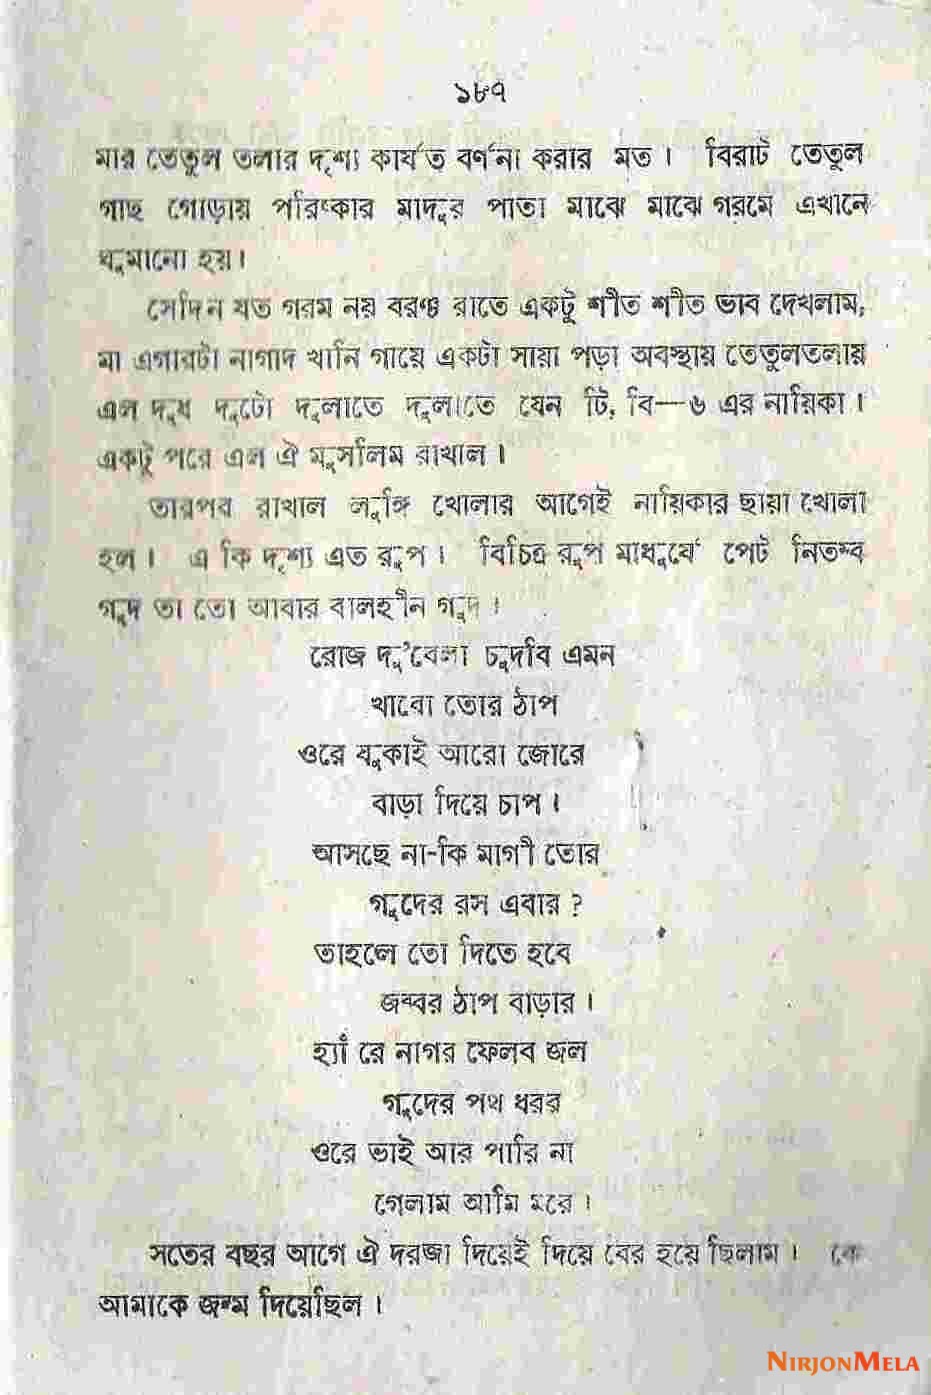 ১৮৭
মার তেতুল তলার দৃশ্য কার্যত বর্ণনা করার মত। বিরাট তেতুল
গাছ গোড়ায় পরিষ্কার মাদুর পাতা মাঝে মাঝে গরমে এখানে
ঘুমানো হয়।
সেদিন যত গরম নয় বরঞ্চ রাতে একটু শীত শীত ভাব দেখলাম,
মা এগারটা নাগাদ খালি গায়ে একটা সায়া পড়া অবস্থায় তেতুলতলায়
এল দুধ দুটো দুলাতে দুলাতে যেন টি, বি—৬ এর নায়িকা।
একটু পরে এল ঐ মুসলিম রাখাল।
তারপর রাখাল লুঙ্গি খোলার আগেই নায়িকার ছায়া খোলা
হল। এ কি দৃশ্য এত রূপ। বিচিত্র রূপ মাধুর্যে পেট নিতম্ব
গুদ তা তো আবার বালহীন গুদ।
রোজ দু'বেলা চুদবি এমন
খাবো তোর ঠাপ
ওরে ঘুকাই আরো জোরে
বাড়া দিয়ে চাপ।
আসছে না-কি মাগী তোর
গুদের রস এবার?
তাহলে তো দিতে হবে
জব্বর ঠাপ বাড়ার।
হ্যাঁ রে নাগর ফেলব জল
গুদের পথ ধরর
ওরে ভাই আর পারি না
গেলাম আমি মরে।
সতের বছর আগে ঐ দরজা দিয়েই দিয়ে বের হয়ে ছিলাম। কে
আমাকে জন্ম দিয়েছিল।
NIRJONMELA